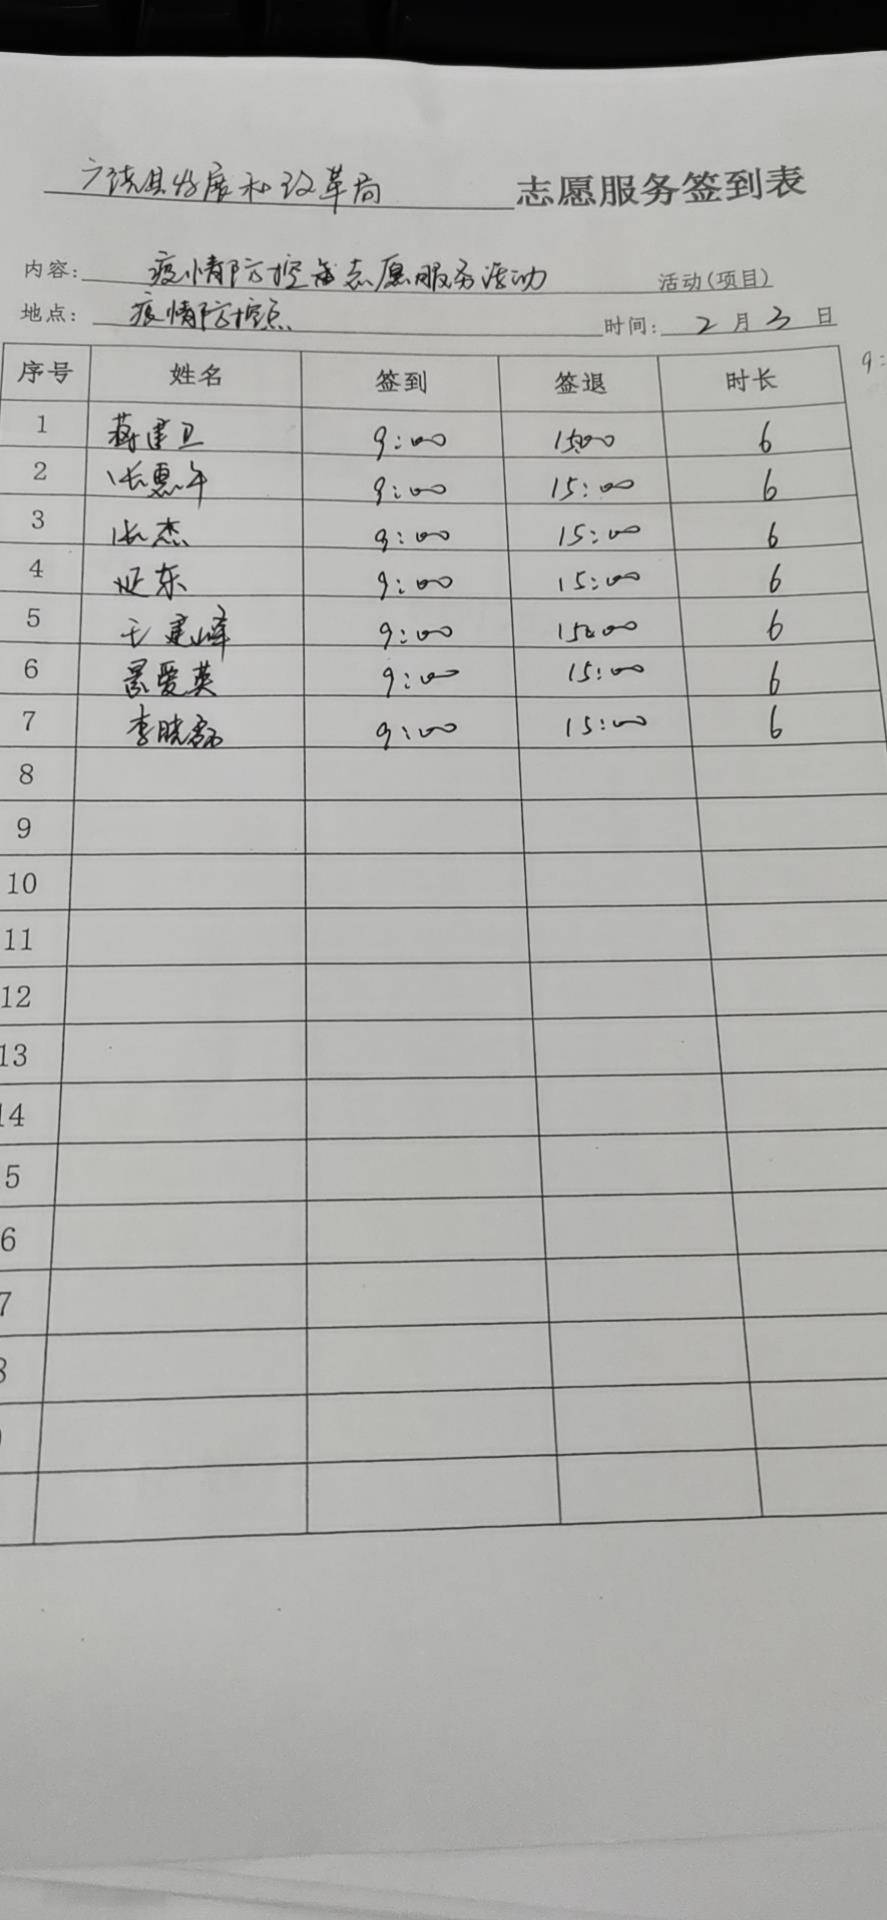 广饶县发展和改革局 志愿服务签到表
内容: 疫情防控 志愿服务活动 活动(项目)
地点: 疫情防控点 时间: 2 月 3 日
序号 姓名 签到 签退 时长
9:
1 蒋建卫 9:00 15:00 6
2 张惠午 9:00 15:00 6
3 张杰 9:00 15:00 6
4 延东 9:00 15:00 6
5 王建峰 9:00 15:00 6
6 爱英 9:00 15:00 6
7 李晓磊 9:00 15:00 6
8
9
10
11
12
13
14
5
6
7
8